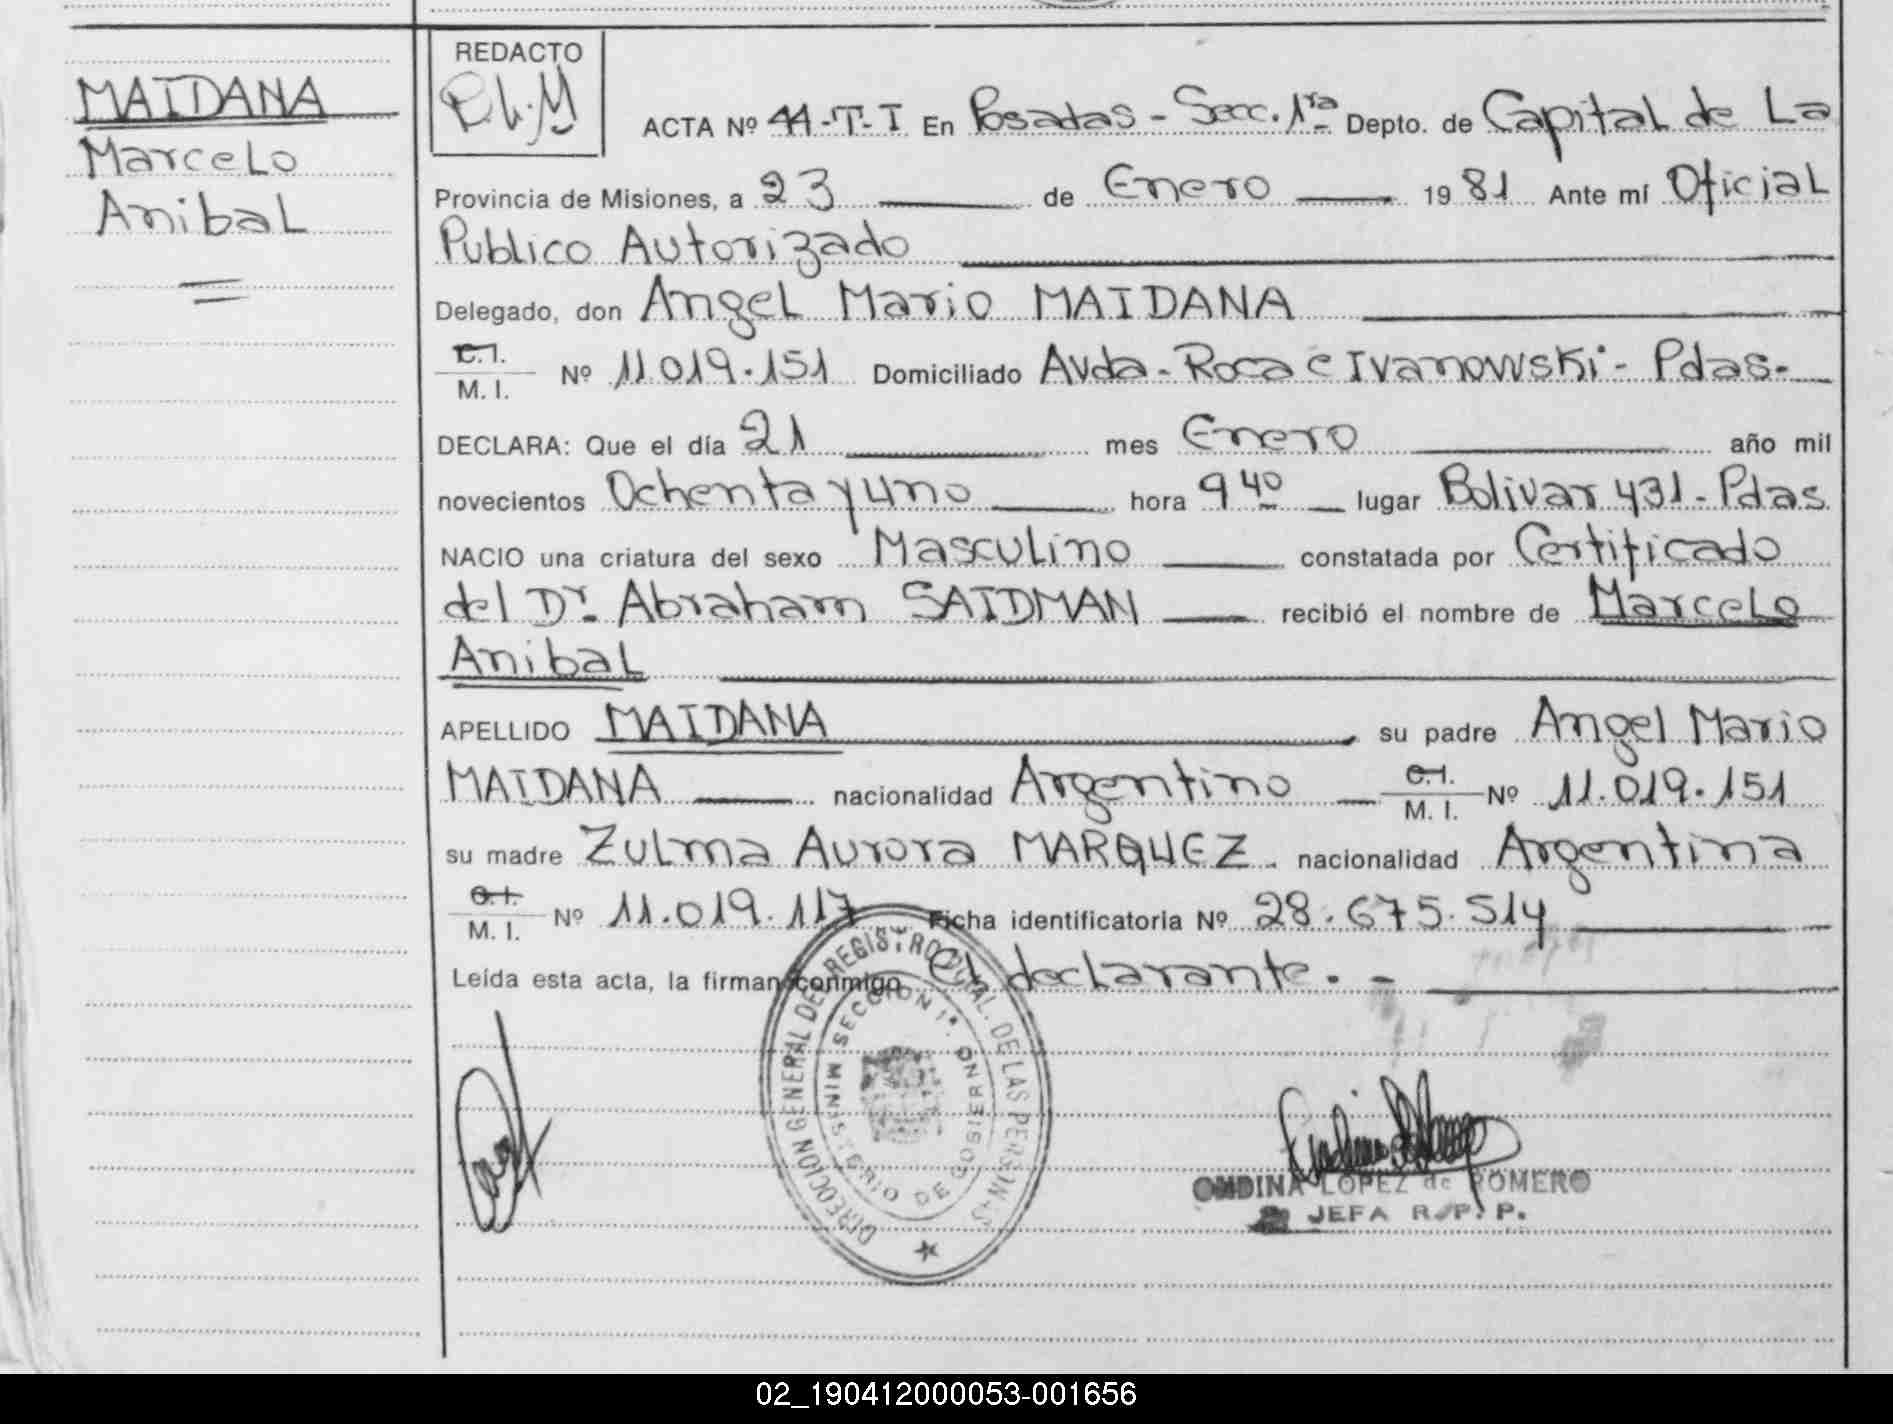 MAIDANA
Marcelo
Anibal
REDACTO
ACTA Nº 44-T-I En Posadas - Secc. 1ra Depto. de Capital de La
Provincia de Misiones, a 23 de Enero 1981 Ante mí Oficial
Publico Autorizado
Delegado, don Angel Mario MAIDANA
C.I.
M. I. Nº 11.019.151 Domiciliado Avda - Roca e Ivanowski - Pdas -
DECLARA: Que el día 21 mes Enero año mil
novecientos Ochenta y uno hora 9 40 lugar Bolivar 431 - Pdas.
NACIO una criatura del sexo Masculino constatada por Certificado
del Dr. Abraham SAIDMAN recibió el nombre de Marcelo
Anibal
APELLIDO MAIDANA su padre Angel Mario
MAIDANA nacionalidad Argentino C.I.
M. I. Nº 11.019.151
su madre Zulma Aurora MARQUEZ. nacionalidad Argentina
C.I.
M. I. Nº 11.019.117 Ficha identificatoria Nº 28.675.514
Leída esta acta, la firman conmigo el declarante. -
DIRECCION GENERAL DEL REGISTRO PCIAL. DE LAS PERSONAS
SECCION 1ª.
MINISTERIO DE GOBIERNO
ONDINA LOPEZ de ROMERO
JEFA R. P. P.
02_190412000053-001656